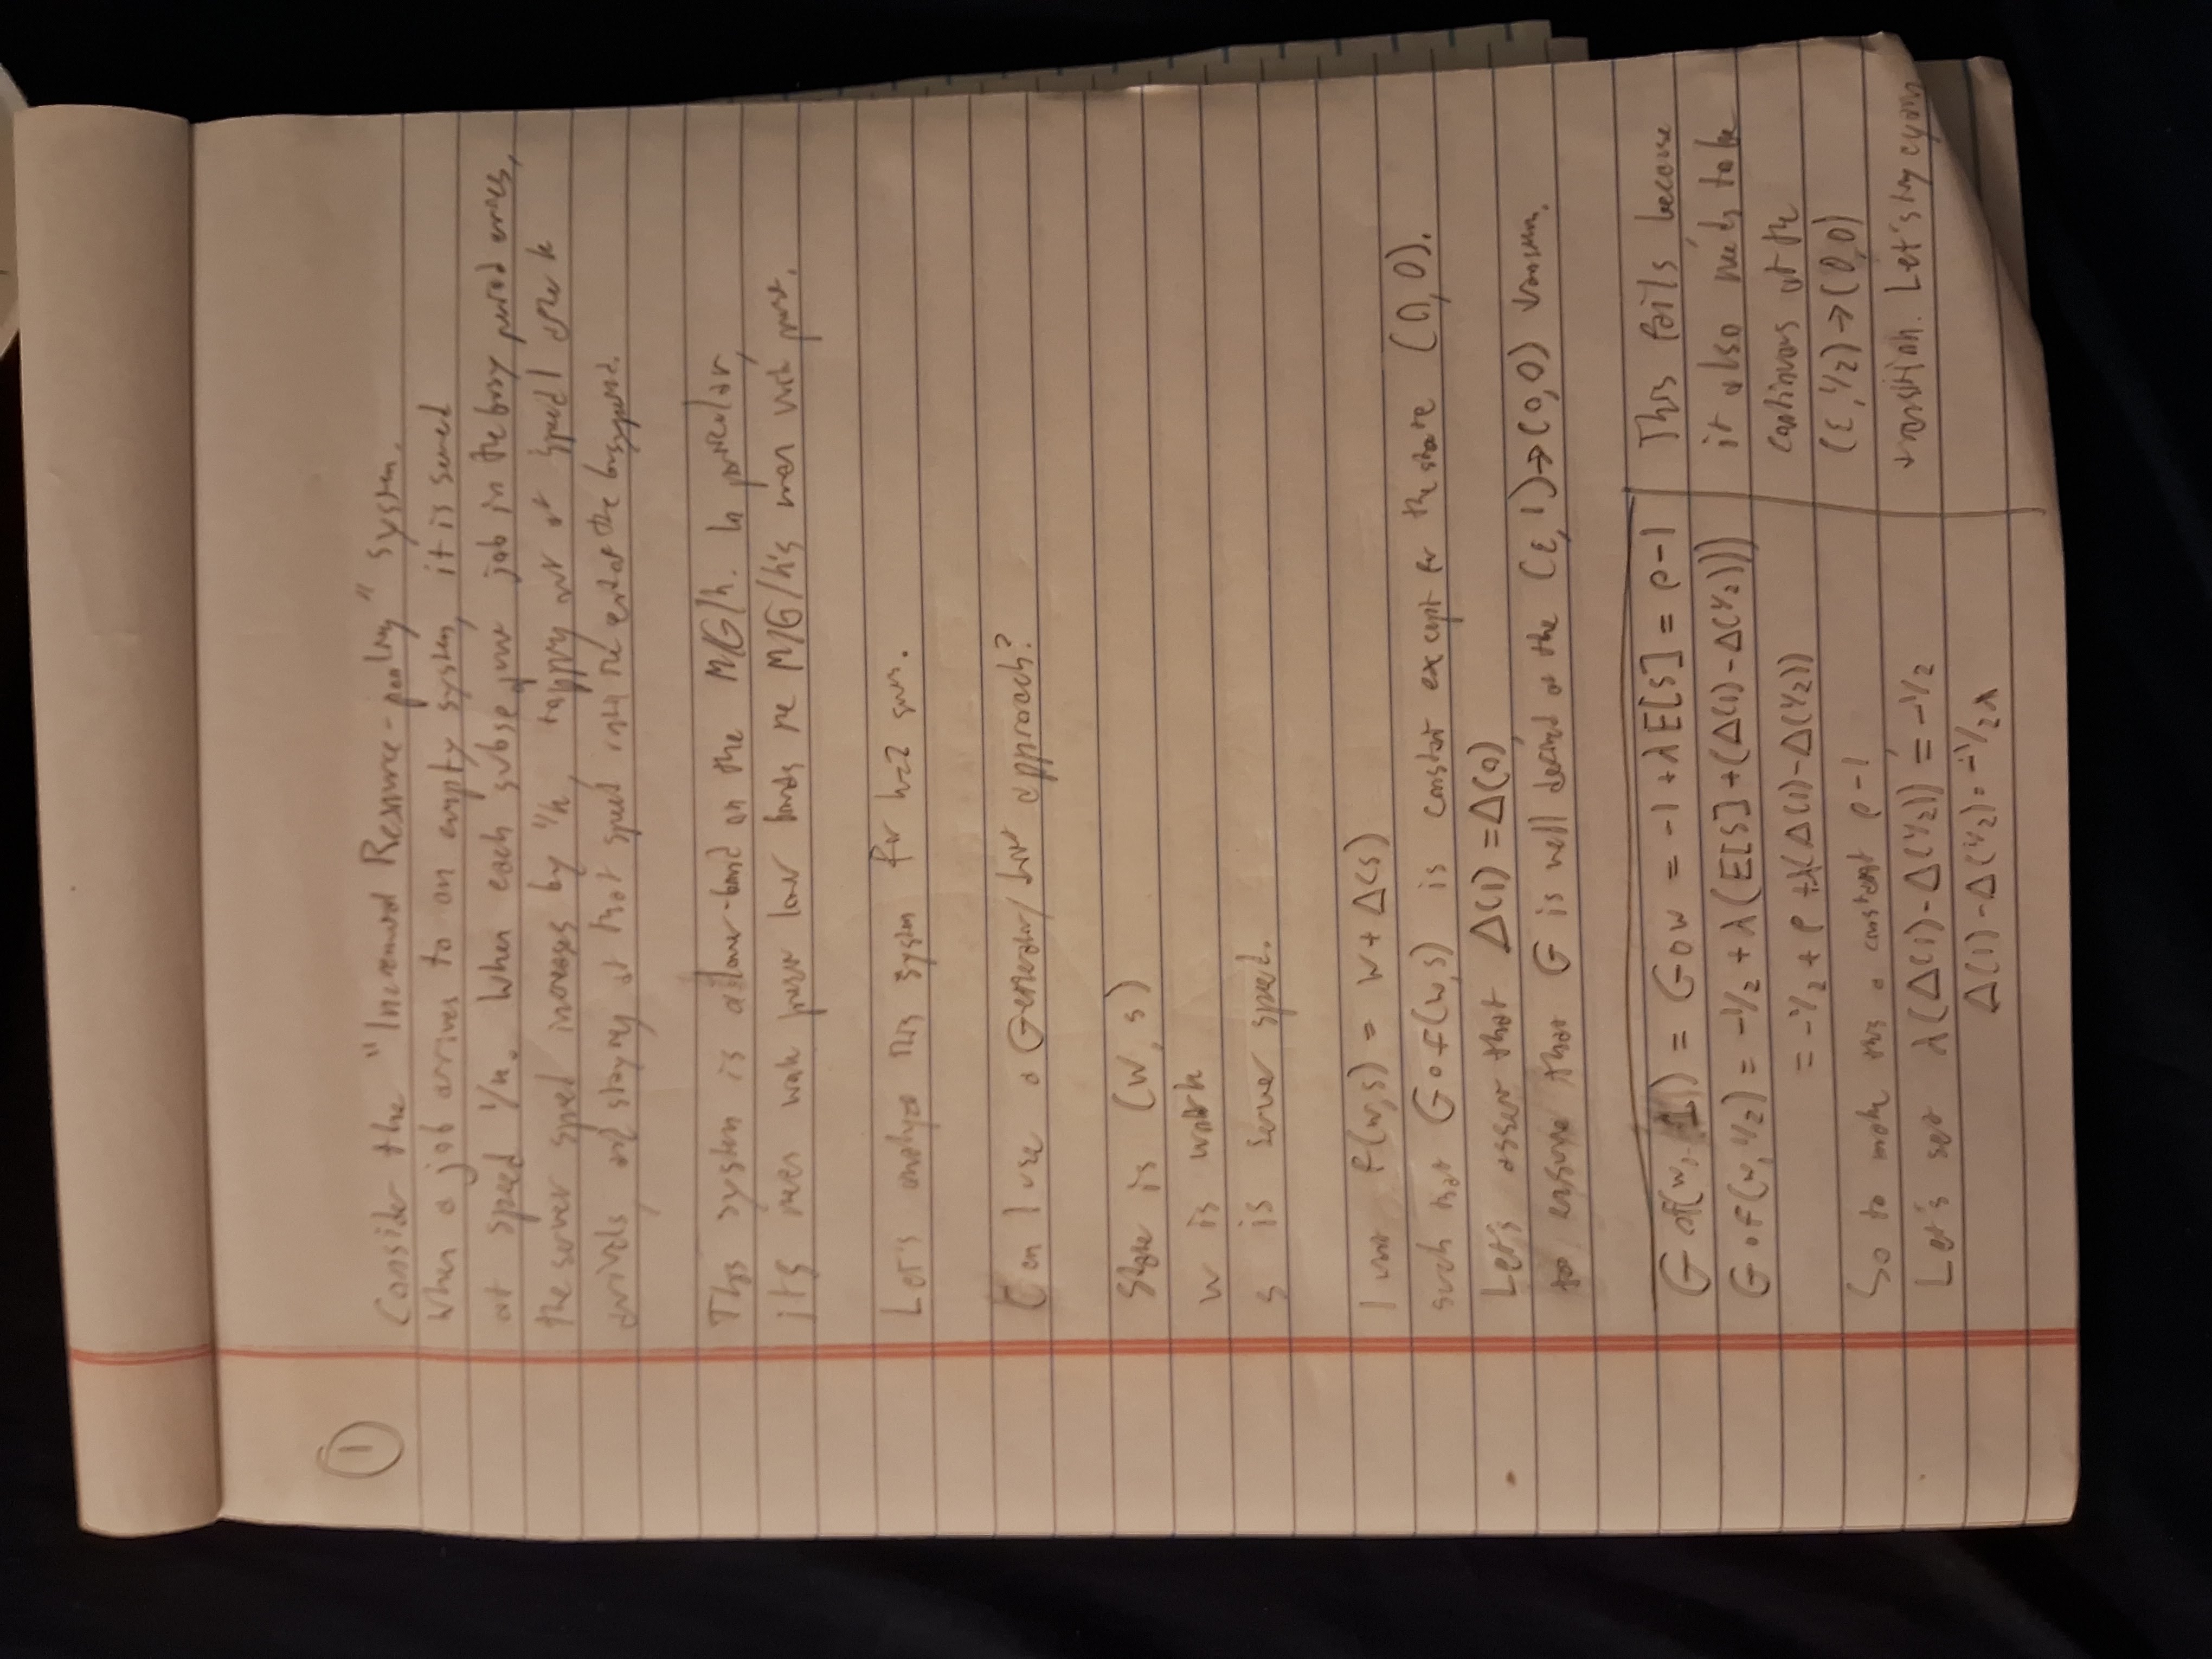 ①
Consider the "Increased Resource-pooling" system.
When a job arrives to an empty system, it is served
at speed 1/k. When each subsequent job in the busy period arrives,
the server speed increases by 1/k, topping out at speed 1 after k
arrivals, and staying at that speed until the end of the busy period.
This system is a lower-bound on the M/G/k. In particular,
its mean work lower bounds the M/G/k's mean work
Let's analyze this system for k=2
Can I use a Generator/ approach?
State is (w, s)
w is work
s is server speed.
I want f(w,s) = w + Δ(s)
such that G∘f(w,s) is constant except for the state (0,0).
Let's assert that Δ(1) = Δ(0),
to ensure that G is well defined at the (ε, 1)→(0,0) transition.
G∘f(w, 1) = G∘w = -1 + λE[S] = ρ-1
G∘f(w, 1/2) = -1/2 + λ(E[S] + (Δ(1) - Δ(1/2)))
= -1/2 + ρ + λ(Δ(1) - Δ(1/2))
So to make this a constant ρ-1,
Let's set λ(Δ(1) - Δ(1/2)) = -1/2
Δ(1) - Δ(1/2) = -1/2λ
This fails because
it also needs to be
continuous at the
(ε, 1/2)→(0,0)
transition. Let's try again